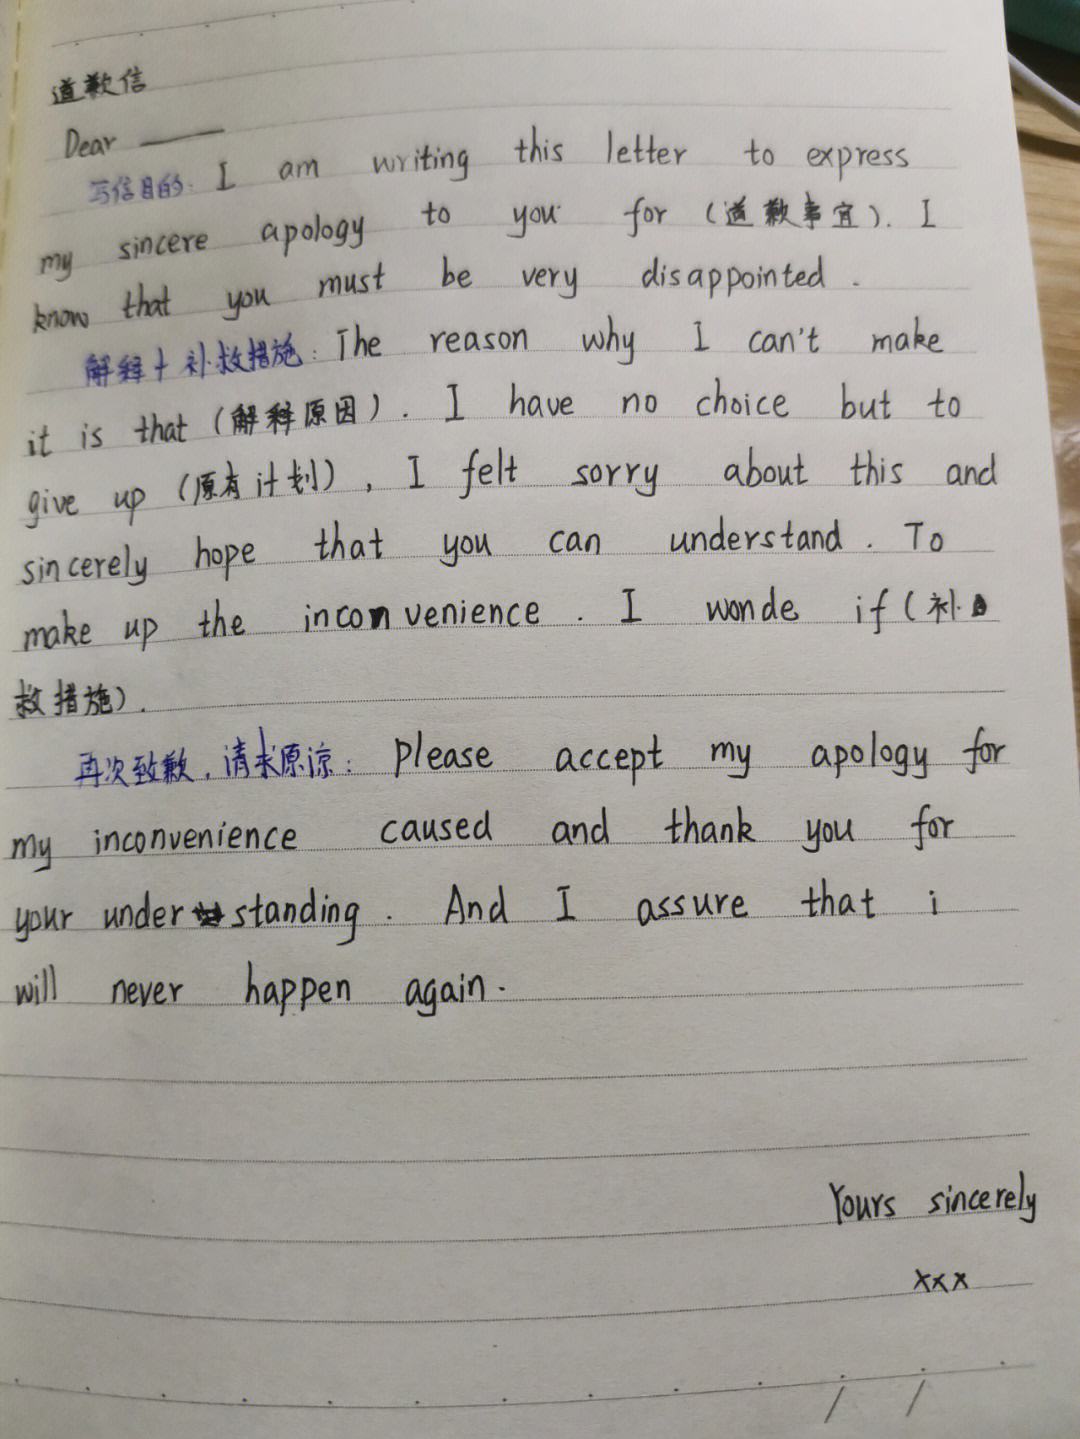 道歉信
Dear ——
写信目的: I am writing this letter to express
my sincere apology to you for (道歉事宜). I
know that you must be very disappointed.
解释+补救措施: The reason why I can't make
it is that (解释原因). I have no choice but to
give up (原有计划), I felt sorry about this and
sincerely hope that you can understand. To
make up the inconvenience. I wonde if (补
救措施).
再次致歉,请求原谅: Please accept my apology for
my inconvenience caused and thank you for
your understanding. And I assure that i
will never happen again.
Yours sincerely
xxx